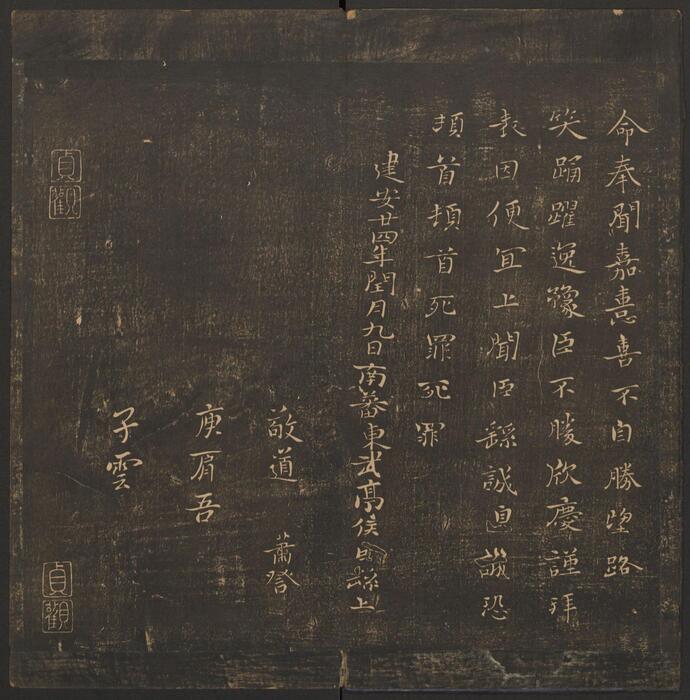 命奉聞嘉憙喜不自勝墮路
笑踊躍逸豫臣不勝欣慶謹拜
表因便宜上聞臣繇誠惶誠恐
頓首頓首死罪死罪
建安廿四年閏月九日南蕃東武亭侯臣繇上
敬道 蕭詧
庾肩吾
子雲
貞觀
貞觀